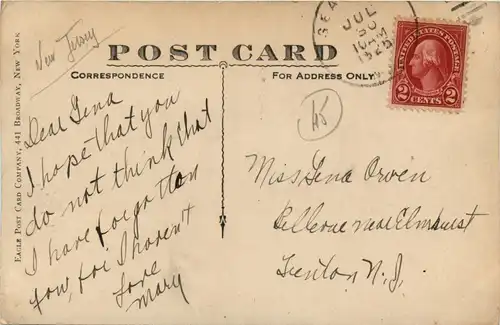 New Jersey
POST CARD
CORRESPONDENCE
FOR ADDRESS ONLY
EAGLE POST CARD COMPANY, 441 BROADWAY, NEW YORK
SEA
JUL
30
10 AM
192
UNITED STATES POSTAGE
2 CENTS 2
45
Dear Lena
I hope that you
do not think that
I have forgotten
you, for I havent
Love
Mary
Miss Lena Orven
Bellevue near Elmhurst
Trenton N.J.